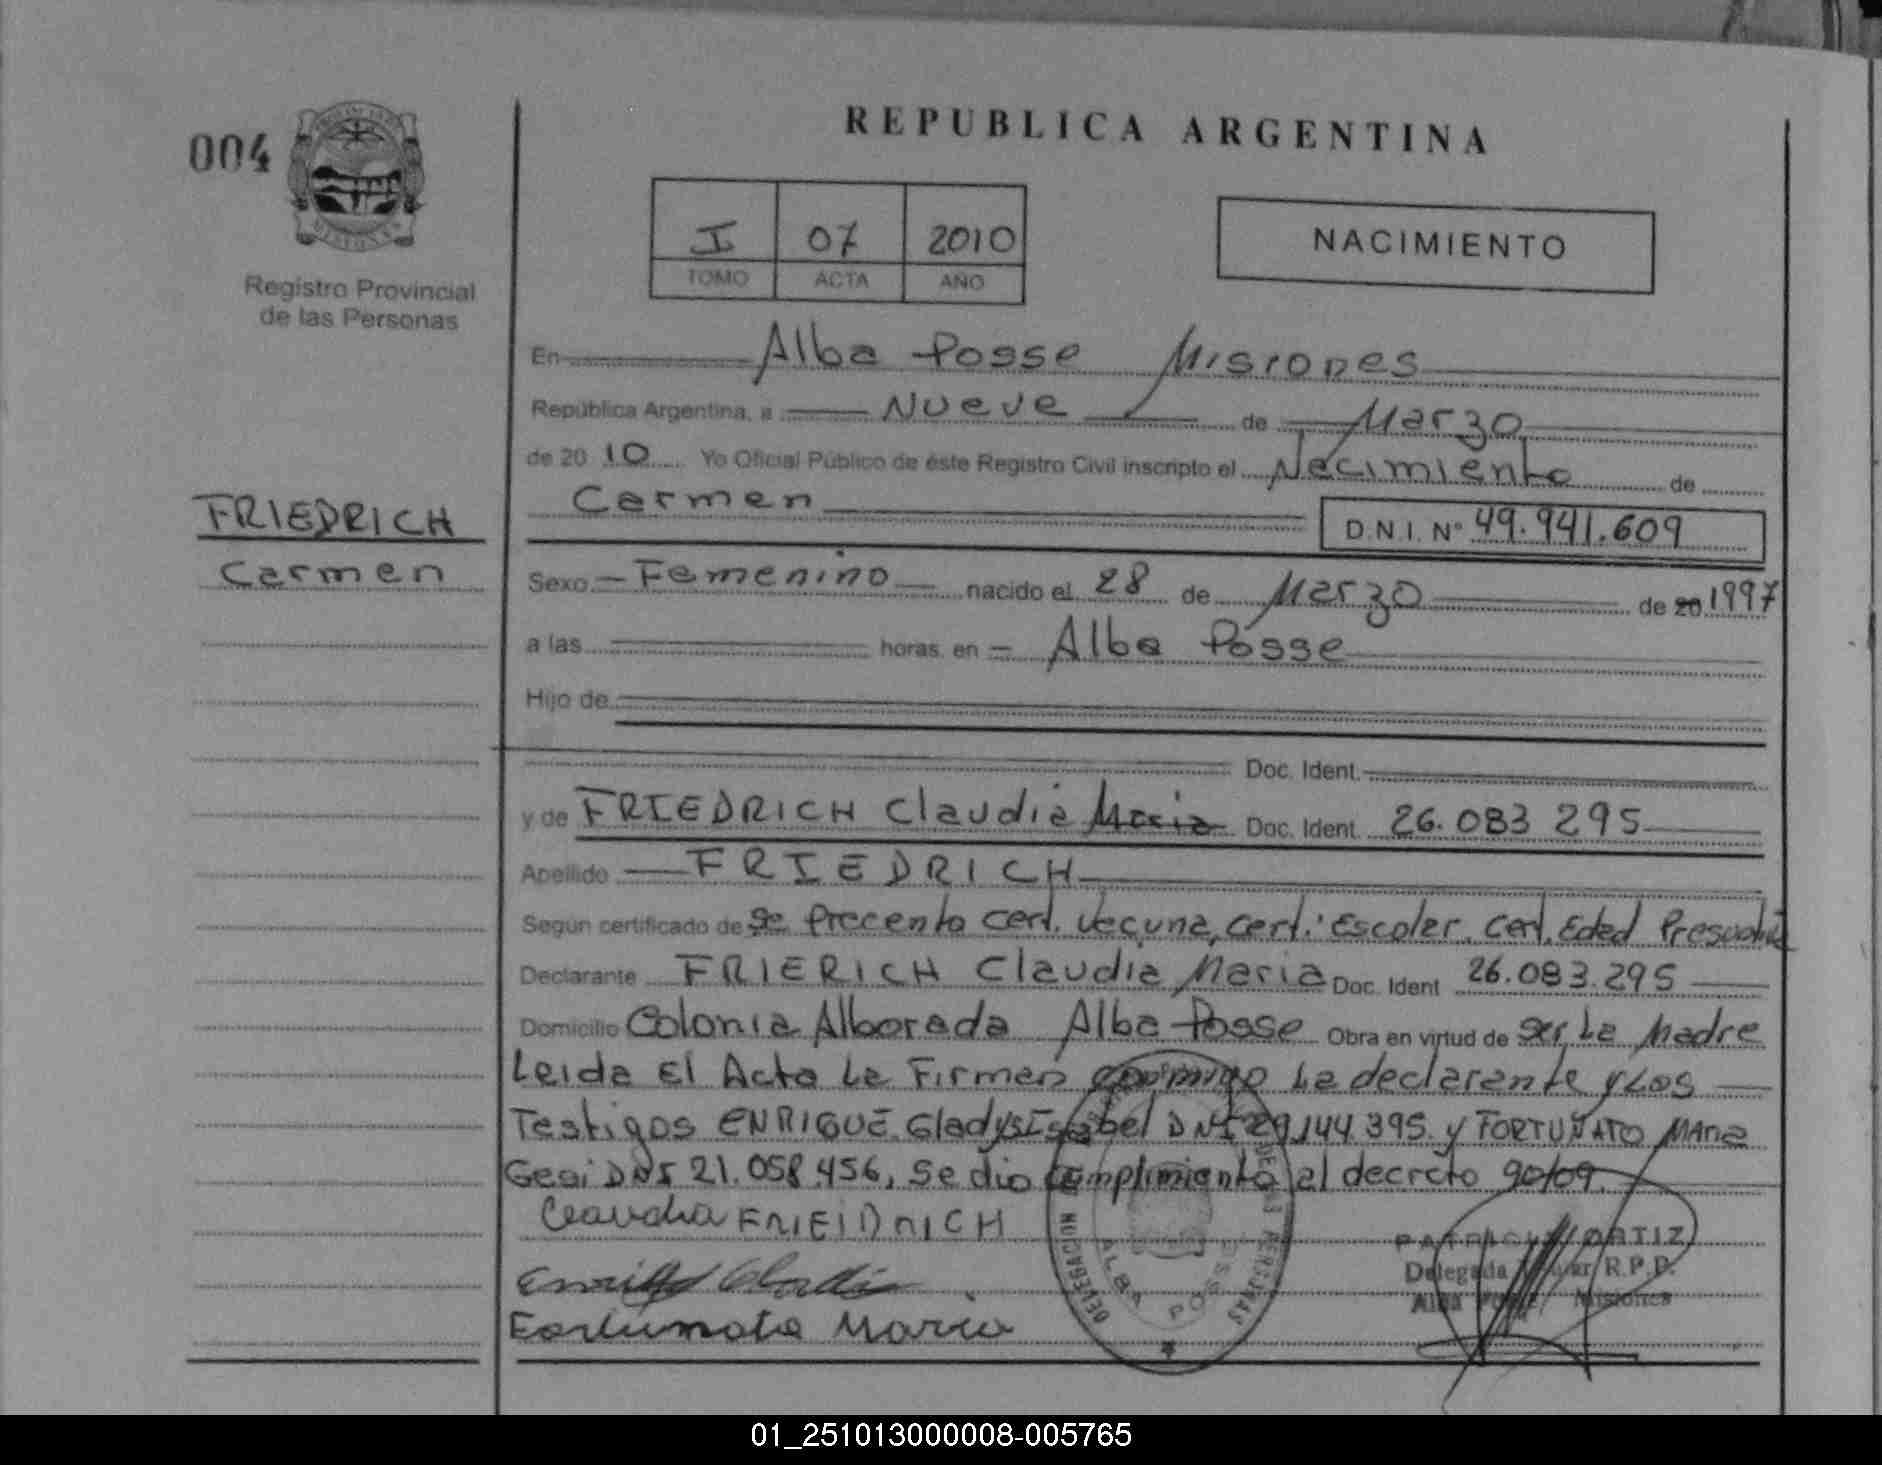 004
MISIONES
Registro Provincial
de las Personas
FRIEDRICH
Carmen
REPUBLICA ARGENTINA
I 07 2010
TOMO ACTA AÑO
NACIMIENTO
En Alba Posse Misiones
República Argentina, a Nueve de Marzo
de 20 10 Yo Oficial Público de éste Registro Civil inscripto el Nacimiento de
Carmen D.N.I. Nº 49.941.609
Sexo Femenino nacido el 28 de Marzo de 20 1997
a las horas. en Alba Posse
Hijo de
Doc. Ident.
y de FRIEDRICH Claudia Maria Doc. Ident. 26.083 295
Apellido FRIEDRICH
Según certificado de Se Precento Cert. Vacuna, Cert. Escolar. Cert. Edad
Declarante FRIERICH Claudia Maria Doc. Ident 26.083.295
Domicilio Colonia Alborada Alba Posse Obra en virtud de Ser La Madre
Leida El Acta La Firman conmigo La declarante y Los
Testigos ENRIQUE Gladys Isabel DNI 29.144.395 y FORTUNATO Maria
DNI 21.058.456, Se dio Cumplimiento al decreto 90/09.
Claudia FRIEIDRICH
Fortunato Maria
DELEGACION DE LAS PERSONAS
ALBA POSSE
PATRICIA ORTIZ
Delegada Titular R.P.P.
Alba Posse Misiones
01_251013000008-005765